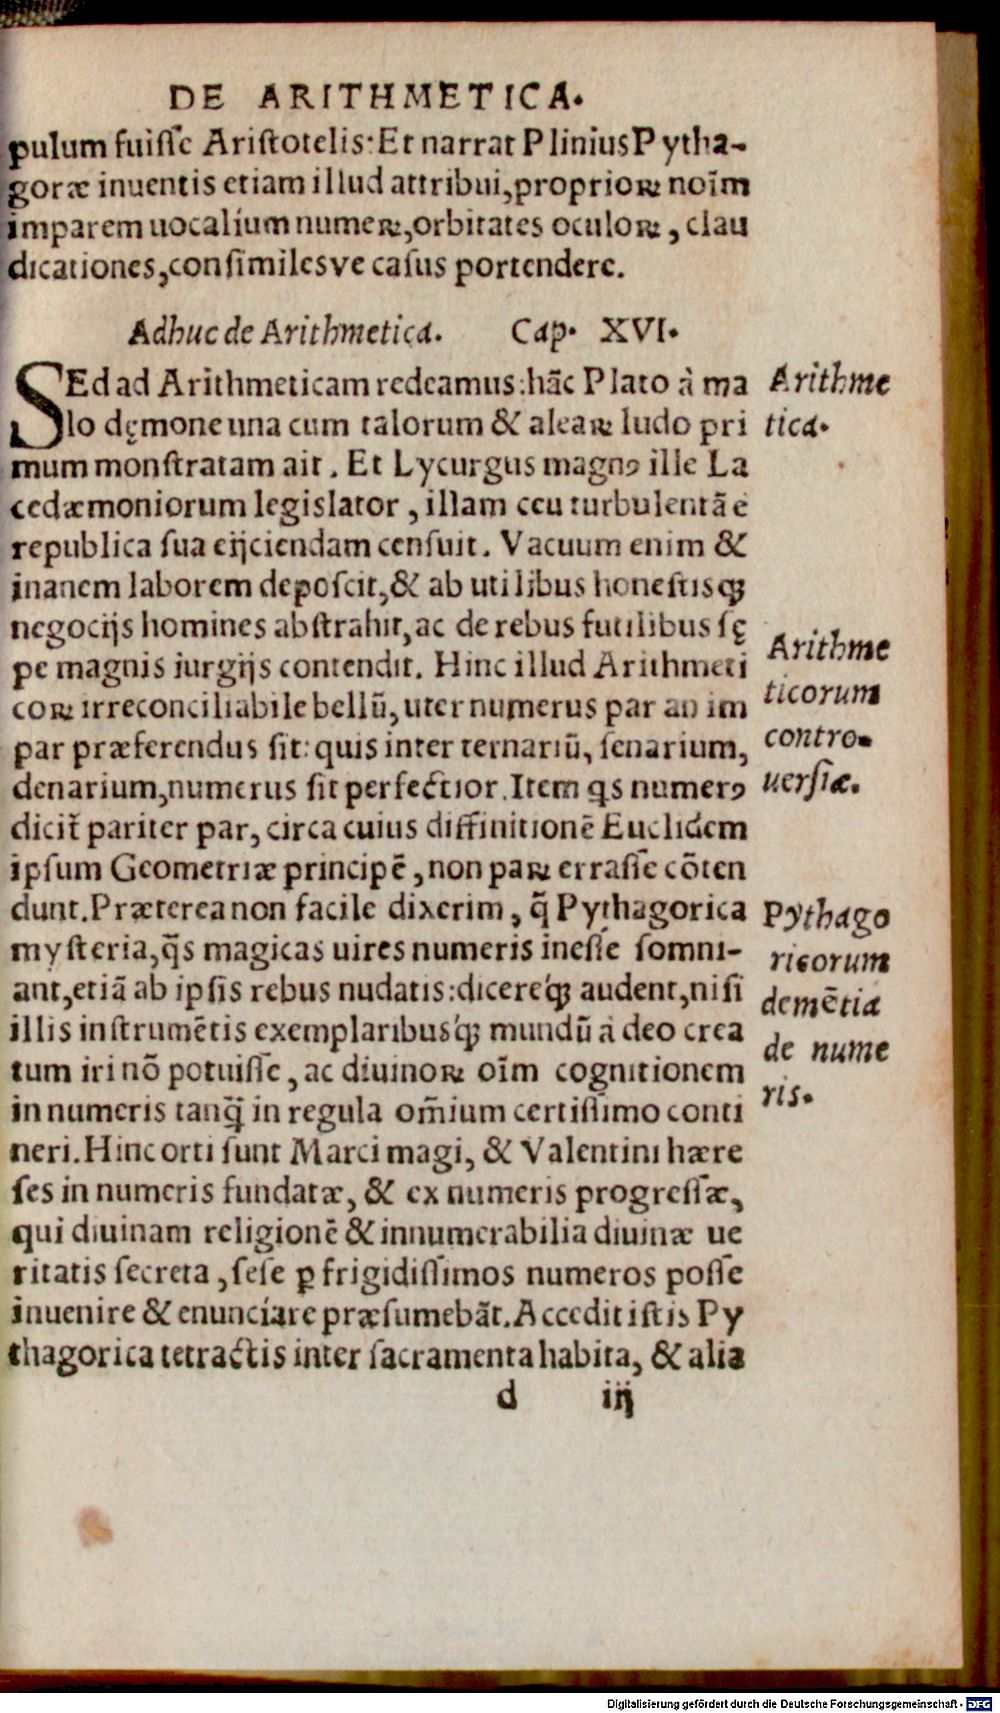 DE ARITHMETICA.
pulum fuiſſe Ariſtotelis: Et narrat Plinius Pytha-
goræ inuentis etiam illud attribui, proprioꝝ noīm
imparem uocalium numeꝝ, orbitates oculoꝝ, clau
dicationes, conſimilesve caſus portendere.
Adhuc de Arithmetica. Cap. XVI.
SEd ad Arithmeticam redeamus: hãc Plato à ma
lo dęmone una cum talorum & aleaꝝ ludo pri
mum monſtratam ait. Et Lycurgus magnꝰ ille La
cedæmoniorum legislator, illam ceu turbulentã e
republica ſua eijciendam cenſuit. Vacuum enim &
inanem laborem depoſcit, & ab utilibus honeſtisqꝫ
negocijs homines abſtrahit, ac de rebus futilibus ſę
pe magnis iurgijs contendit. Hinc illud Arithmeti
coꝝ irreconciliabile bellũ, uter numerus par an im
par præferendus ſit: quis inter ternariũ, ſenarium,
denarium, numerus ſit perfectior. Item qs numerꝰ
dicit̃ pariter par, circa cuius diffinitionẽ Euclidem
ipſum Geometriæ principẽ, non paꝝ erraſſe cõten
dunt. Præterea non facile dixerim, q̃ Pythagorica
myſteria, q̃s magicas uires numeris ineſſe ſomni-
ant, etiã ab ipſis rebus nudatis: dicereq́ꝫ audent, niſi
illis inſtrumẽtis exemplaribusq́ꝫ mundũ à deo crea
tum iri nõ potuiſſe, ac diuinoꝝ oīm cognitionem
in numeris tanq̃ in regula om̃ium certiſſimo conti
neri. Hinc orti ſunt Marci magi, & Valentini hære
ſes in numeris fundatæ, & ex numeris progreſſæ,
qui diuinam religionẽ & innumerabilia diuinæ ue
ritatis ſecreta, ſeſe ꝑ frigidiſſimos numeros poſſe
inuenire & enunciare præſumebãt. Accedit iſtis Py
thagorica tetractis inter ſacramenta habita, & alia
d iij
Arithme
tica.
Arithme
ticorum
contro-
uerſiæ.
Pythago
ricorum
demẽtia
de nume
ris.
Digitalisierung gefördert durch die Deutsche Forschungsgemeinschaft - DFG